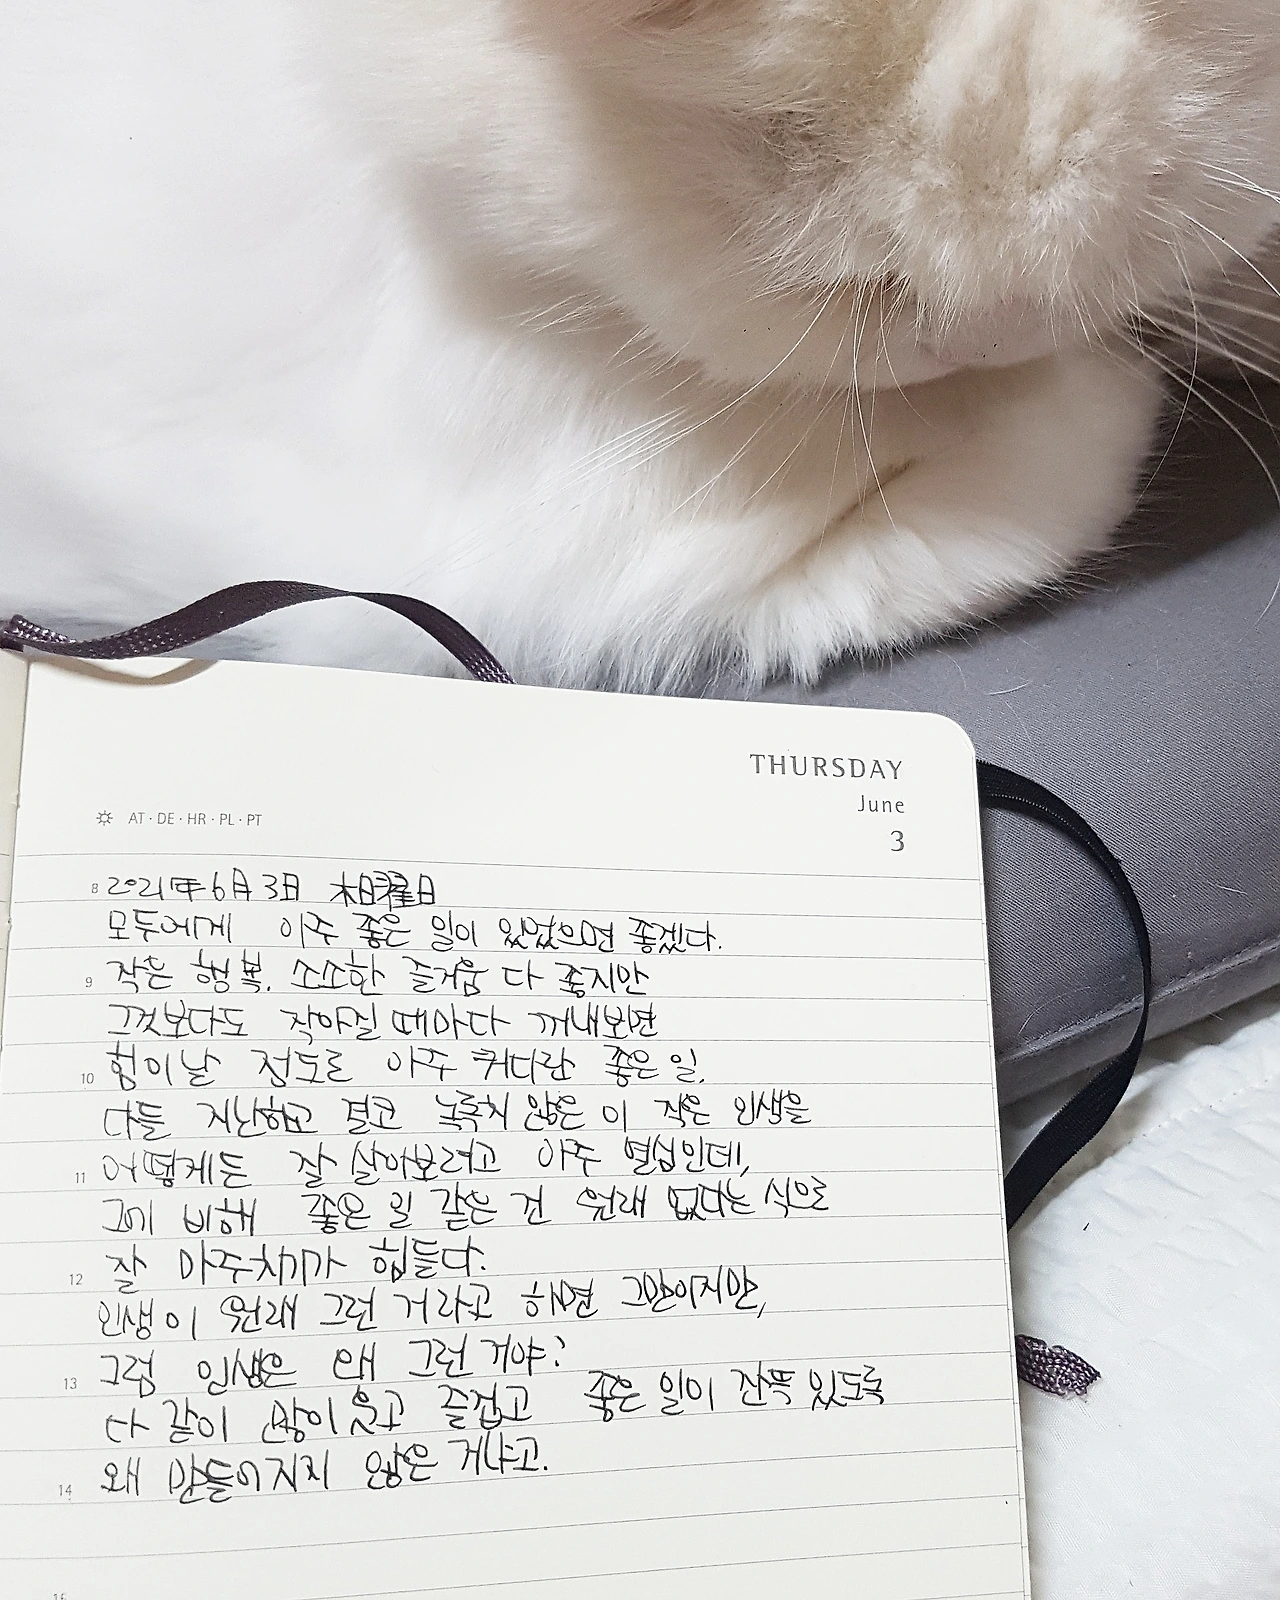 THURSDAY
June
3
AT · DE · HR · PL · PT
8 2021年 6月 3日 木日曜日
모두에게 아주 좋은 일이 있었으면 좋겠다.
9 작은 행복. 소소한 즐거움 다 좋지만
그것보다도 작아질 때마다 꺼내보면
10 힘이날 정도로 아주 커다란 좋은 일.
다들 지난하고 결코 녹록치 않은 이 작은 인생을
11 어떻게든 잘 살아보려고 아주 열심인데,
그에 비해 좋은 일 같은 건 원래 없다는 식으로
12 잘 마주치기가 힘들다.
인생이 원래 그런 거라고 하면 그만이지만,
13 그럼 인생은 왜 그런거야?
다 같이 많이 웃고 즐겁고 좋은 일이 잔뜩 있도록
14 왜 만들어지지 않은 거냐고.